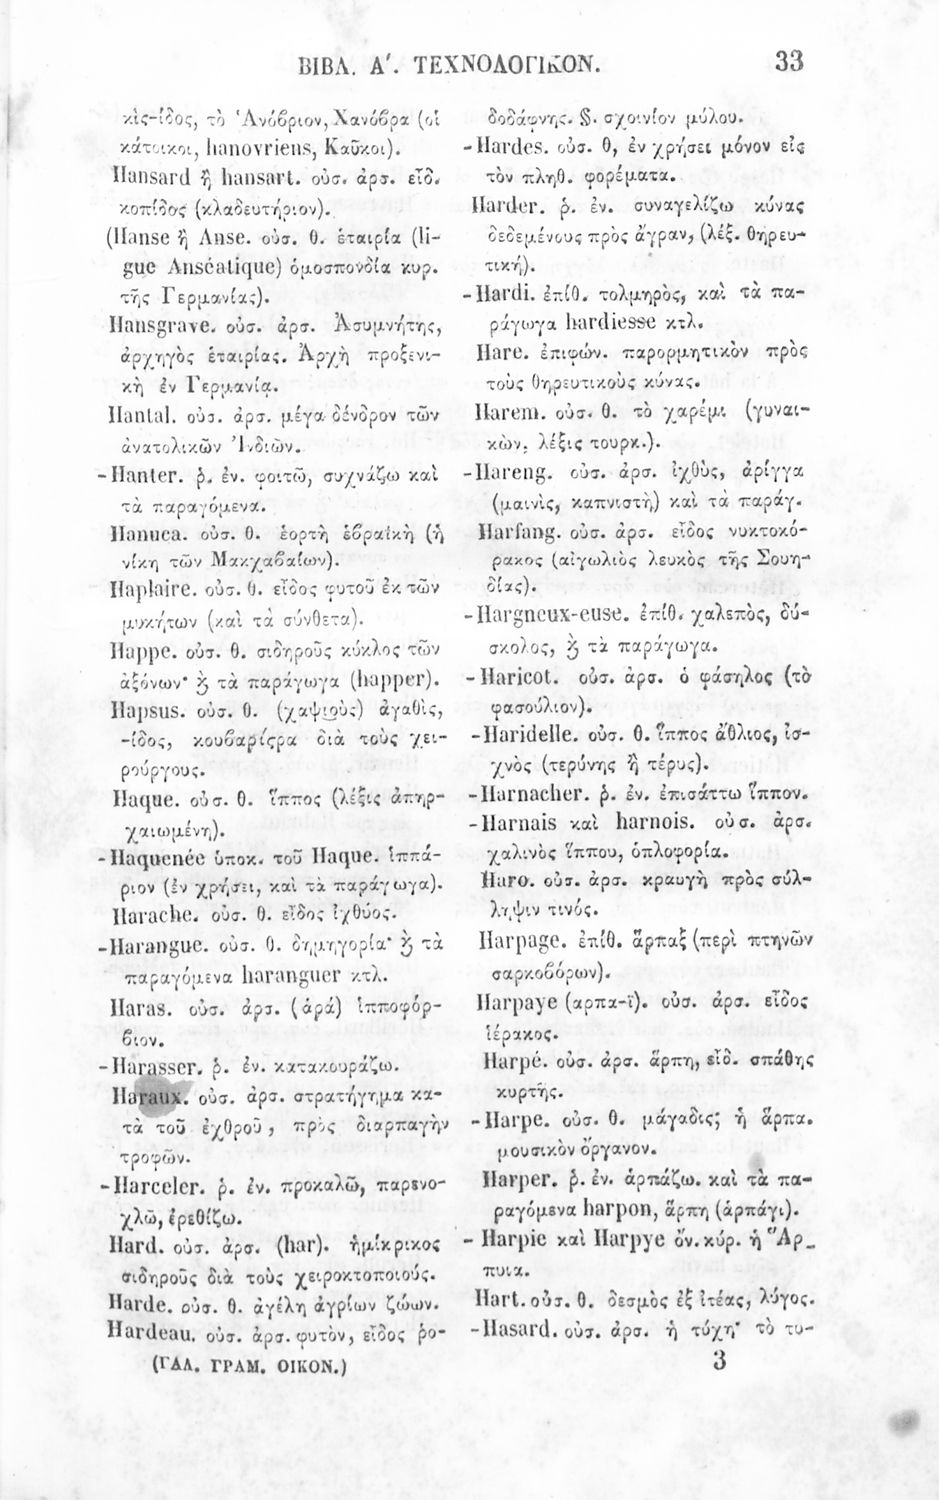 ΒΙΒΛ. Α'. ΤΕΧΝΟΛΟΓΙΚΟΝ.
33
κὶς-ίδος, τὸ Ἀνόβριον, Χανόβρα (οἱ
κάτοικοι, hanovriens, Καῦκοι).
Hansard ἢ hansart. οὐσ. ἀρσ. εἶδ.
κοπίδος (κλαδευτήριον).
(Hanse ἢ Anse. οὐσ. θ. ἑταιρία (li-
gue Anséatique) ὁμοσπονδία κυρ.
τῆς Γερμανίας).
Hansgrave. οὐσ. ἀρσ. Ἀσυμνήτης,
ἀρχηγὸς ἑταιρίας. Ἀρχὴ προξενι-
κὴ ἐν Γερμανίᾳ.
Hantal. οὐσ. ἀρσ. μέγα δένδρον τῶν
ἀνατολικῶν Ἰνδιῶν.
-Hanter. ῥ. ἐν. φοιτῶ, συχνάζω καὶ
τὰ παραγόμενα.
Hanuca. οὐσ. θ. ἑορτὴ ἑβραϊκὴ (ἡ
νίκη τῶν Μακχαβαίων).
Haplaire. οὐσ. θ. εἶδος φυτοῦ ἐκ τῶν
μυκήτων (καὶ τὰ σύνθετα).
Happe. οὐσ. θ. σιδηροῦς κύκλος τῶν
ἀξόνων· ϗ τὰ παράγωγα (happer).
Hapsus. οὐσ. θ. (χαψιοὺς) ἀγαθὶς,
-ίδος, κουβαρίςρα διὰ τοὺς χει-
ρούργους.
Haque. οὐσ. θ. ἵππος (λέξις ἀπηρ-
χαιωμένη).
-Haquenée ὑποκ. τοῦ Haque. ἱππά-
ριον (ἐν χρήσει, καὶ τὰ παράγωγα).
Harache. οὐσ. θ. εἶδος ἰχθύος.
-Harangue. οὐσ. θ. δημηγορία· ϗ τὰ
παραγόμενα haranguer κτλ.
Haras. οὐσ. ἀρσ. (ἀρά) ἱπποφόρ-
βιον.
-Harasser. ῥ. ἐν. κατακουράζω.
Haraux. οὐσ. ἀρσ. στρατήγημα κα-
τὰ τοῦ ἐχθροῦ, πρὸς διαρπαγὴν
τροφῶν.
-Harceler. ῥ. ἐν. προκαλῶ, παρενο-
χλῶ, ἐρεθίζω.
Hard. οὐσ. ἀρσ. (har). ἡμίκρικος
σιδηροῦς διὰ τοὺς χειροκτοποιούς.
Harde. οὐσ. θ. ἀγέλη ἀγρίων ζώων.
Hardeau. οὐσ. ἀρσ. φυτὸν, εἶδος ῥο-
(ΓΑΛ. ΓΡΑΜ. ΟΙΚΟΝ.)
δοδάφνης. §. σχοινίον μύλου.
-Hardes. οὐσ. θ, ἐν χρήσει μόνον εἰς
τὸν πληθ. φορέματα.
Harder. ῥ. ἐν. συναγελίζω κύνας
δεδεμένους πρὸς ἄγραν, (λέξ. θηρευ-
τική).
-Hardi. ἐπίθ. τολμηρὸς, καὶ τὰ πα-
ράγωγα hardiesse κτλ.
Hare. ἐπιφών. παρορμητικὸν πρὸς
τοὺς θηρευτικοὺς κύνας.
Harem. οὐσ. θ. τὸ χαρέμι (γυναι-
κὼν, λέξις τουρκ.).
-Hareng. οὐσ. ἀρσ. ἰχθὺς, ἀρίγγα
(μαινὶς, καπνιστὴ) καὶ τὰ παράγ.
Harfang. οὐσ. ἀρσ. εἶδος νυκτοκό-
ρακος (αἰγωλιὸς λευκὸς τῆς Σουη-
δίας).
-Hargneux-euse. ἐπίθ. χαλεπὸς, δύ-
σκολος, ϗ τὰ παράγωγα.
-Haricot. οὐσ. ἀρσ. ὁ φάσηλος (τὸ
φασούλιον).
-Haridelle. οὐσ. θ. ἵππος ἄθλιος, ἰσ-
χνὸς (τερύνης ἢ τέρυς).
-Harnacher. ῥ. ἐν. ἐπισάττω ἵππον.
-Harnais καὶ harnois. οὐσ. ἀρσ.
χαλινὸς ἵππου, ὁπλοφορία.
Haro. οὐσ. ἀρσ. κραυγὴ πρὸς σύλ-
ληψιν τινός.
Harpage. ἐπίθ. ἅρπαξ (περὶ πτηνῶν
σαρκοβόρων).
Harpaye (αρπα-ΐ). οὐσ. ἀρσ. εἶδος
ἱέρακος.
Harpé. οὐσ. ἀρσ. ἅρπη, εἶδ. σπάθης
κυρτῆς.
-Harpe. οὐσ. θ. μάγαδις; ἡ ἅρπα.
μουσικὸν ὄργανον.
Harper. ῥ. ἐν. ἁρπάζω. καὶ τὰ πα-
ραγόμενα harpon, ἅρπη (ἁρπάγι).
- Harpie καὶ Harpye ὄν. κύρ. ἡ Ἅρ-
πυια.
Hart. οὐσ. θ. δεσμὸς ἐξ ἰτέας, λύγος.
-Hasard. οὐσ. ἀρσ. ἡ τύχη· τὸ τυ-
3